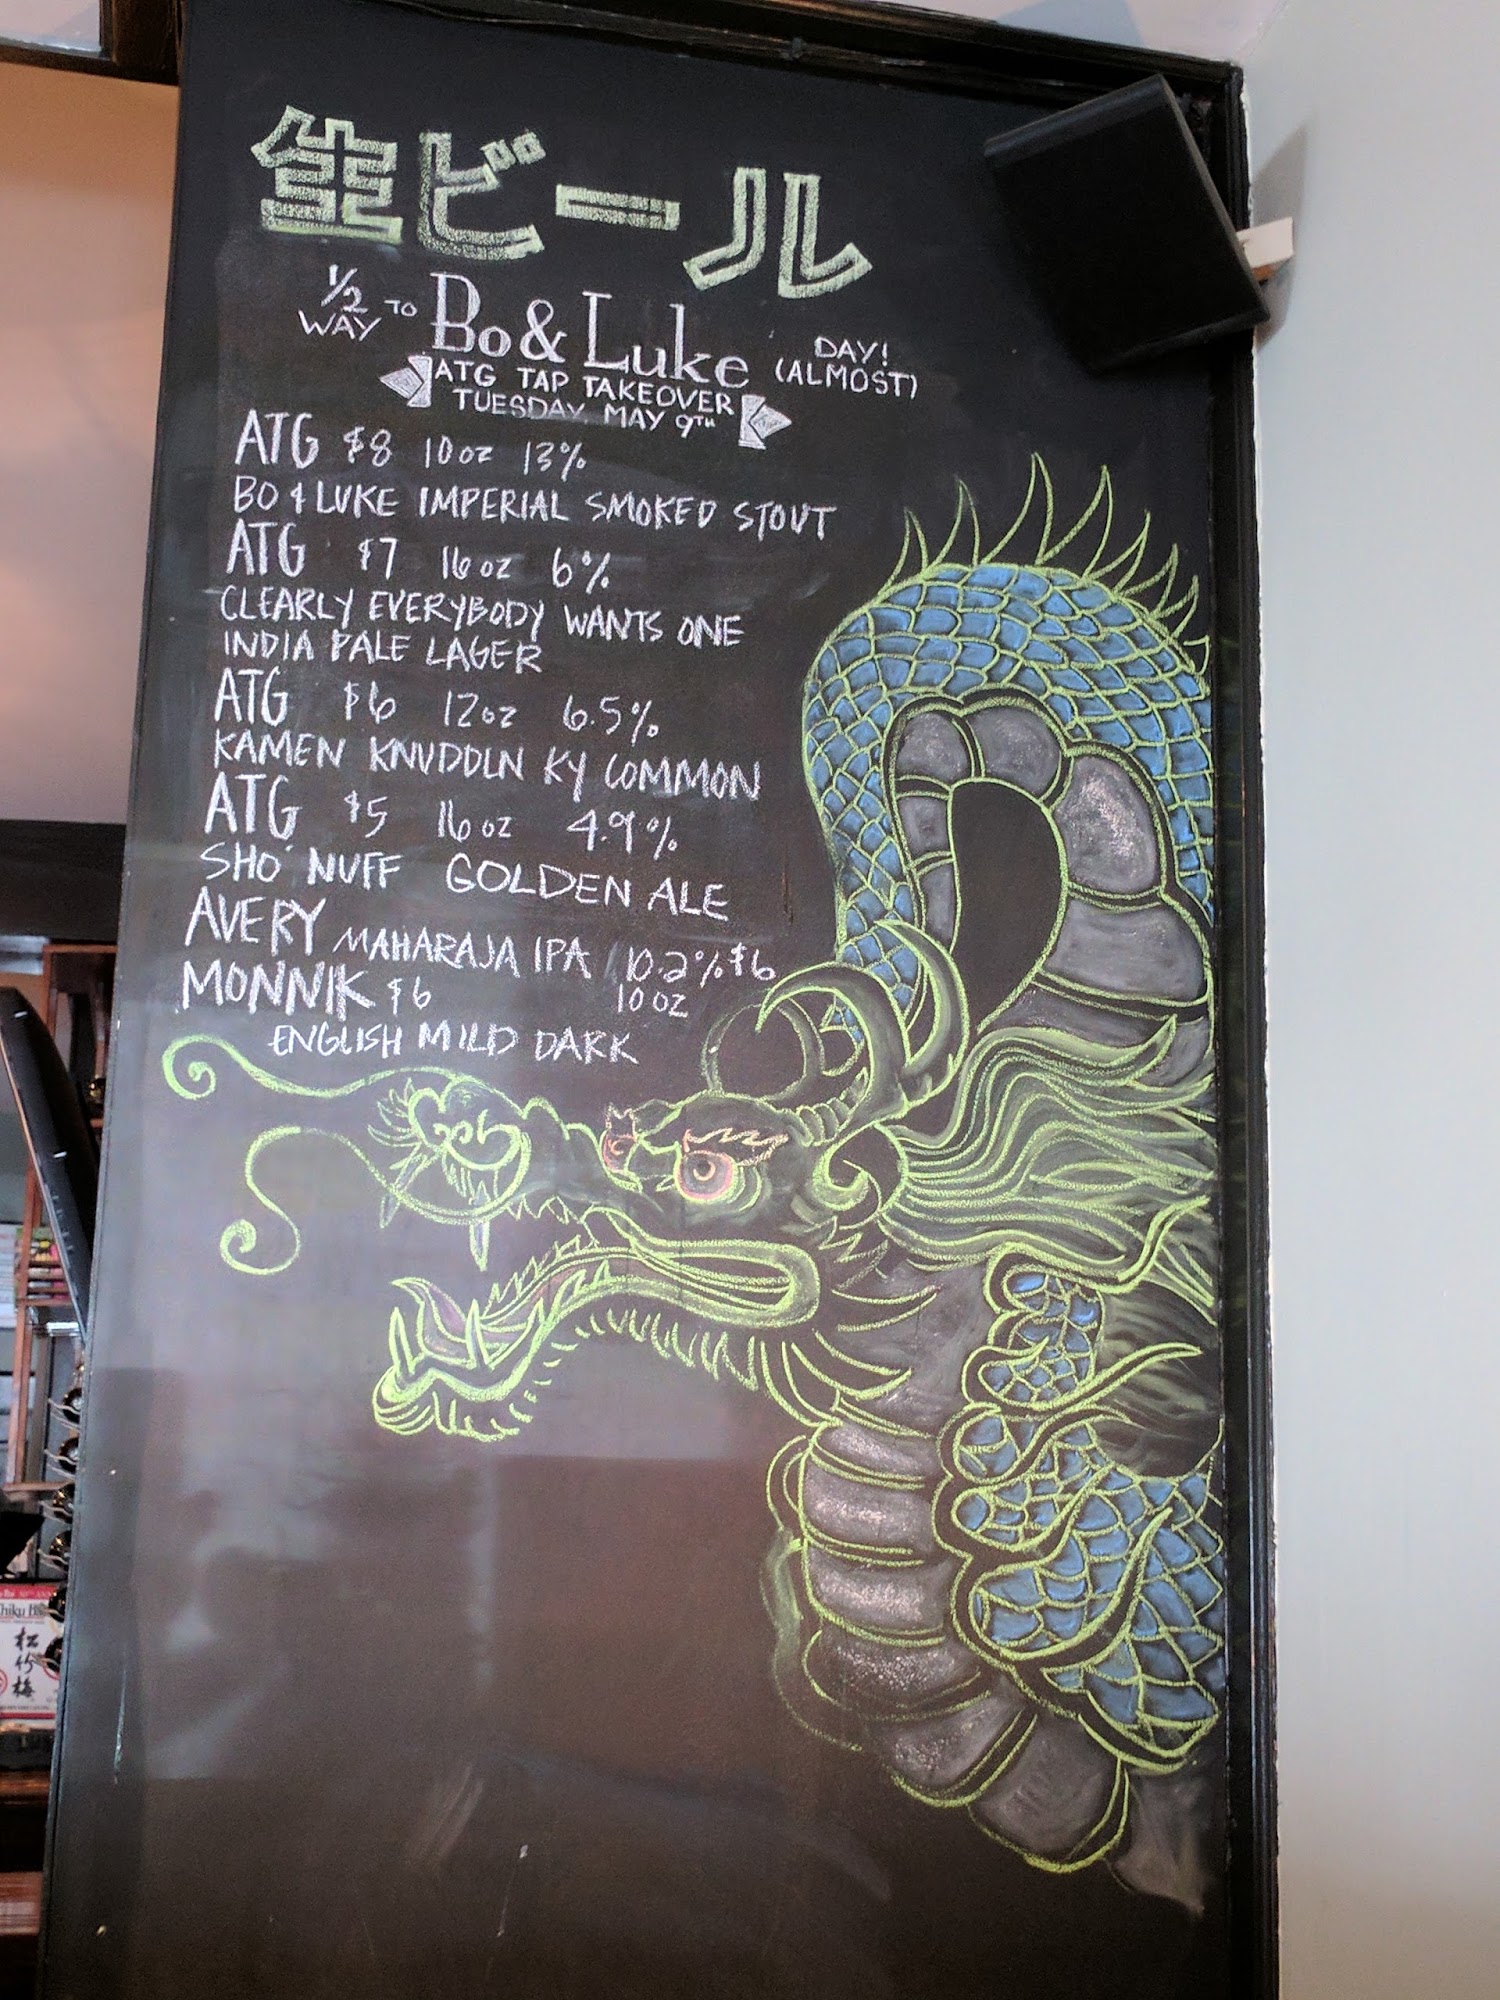 生ビール
1/2 WAY TO Bo & Luke DAY! (ALMOST)
ATG TAP TAKEOVER
TUESDAY, MAY 9TH
ATG $8 10oz 13%
BO & LUKE IMPERIAL SMOKED STOUT
ATG $7 16oz 6%
CLEARLY EVERYBODY WANTS ONE
INDIA PALE LAGER
ATG $6 12oz 6.5%
KAMEN KNUDDLN KY COMMON
ATG $5 16oz 4.9%
SHO' NUFF GOLDEN ALE
AVERY MAHARAJA IPA 10.2% $6
MONNIK $6 10oz
ENGLISH MILD DARK
松竹梅